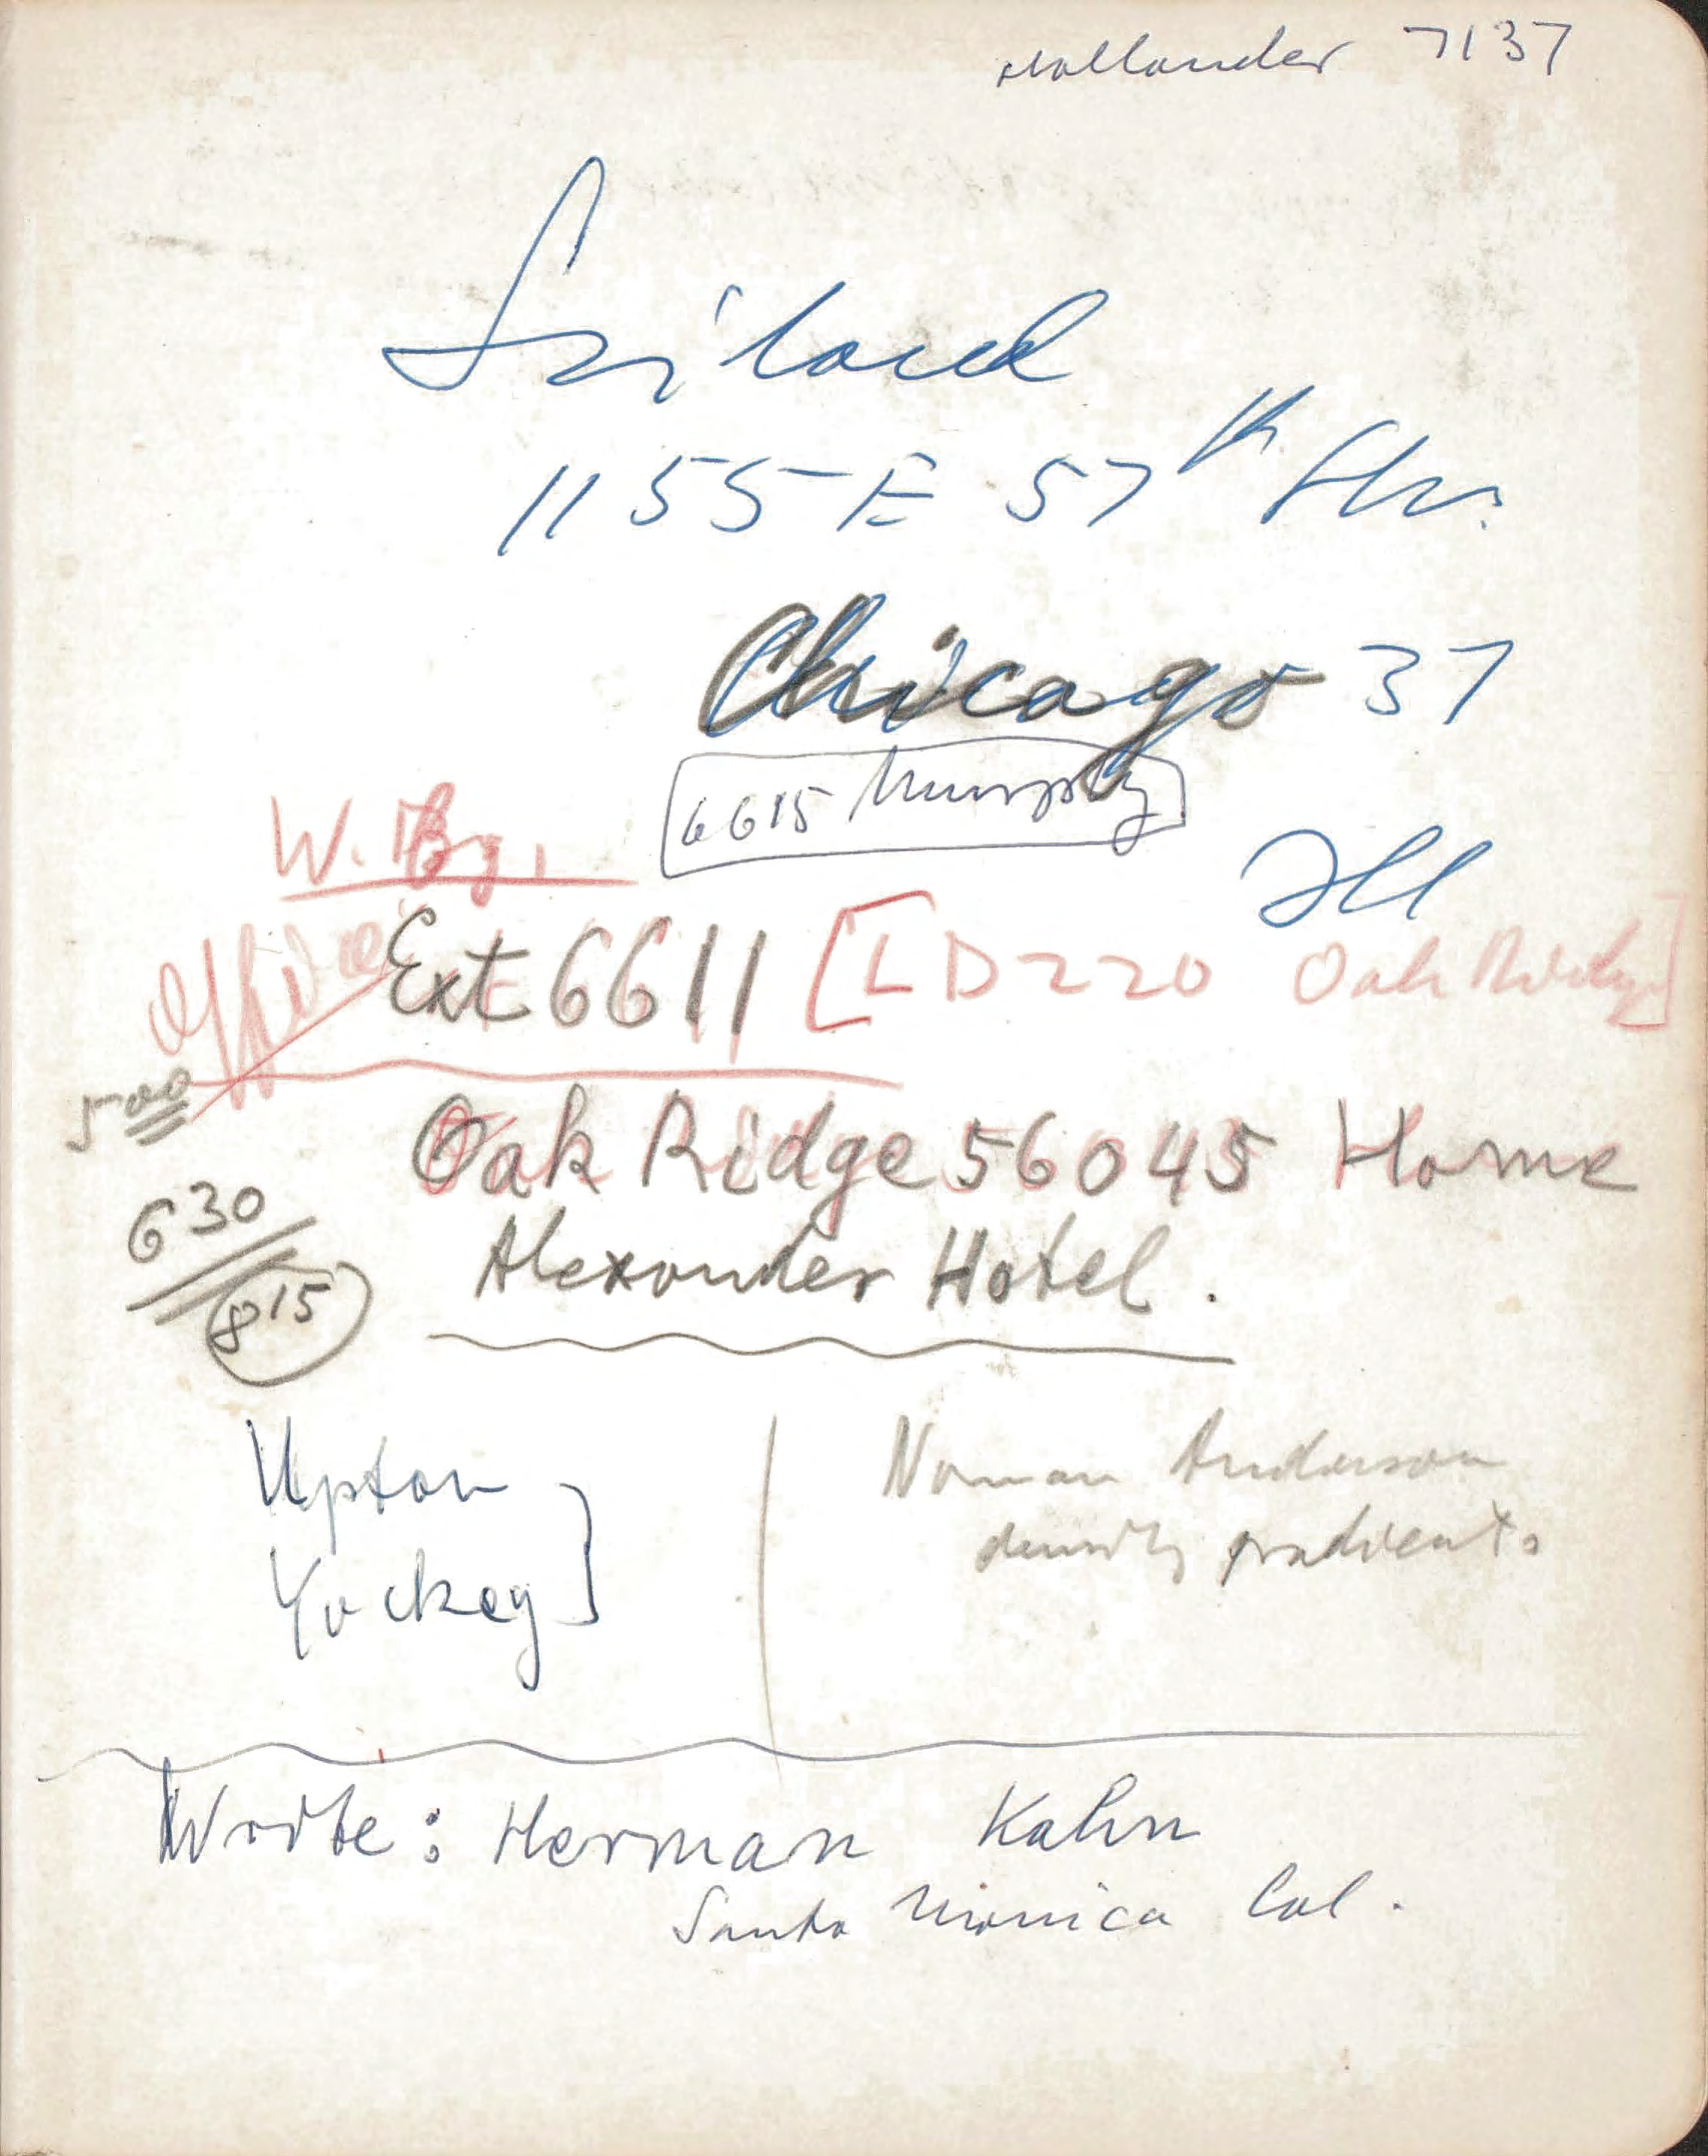 Hollander 7137
Szilard
1155 E 57th Str.
Chicago 37
6615 Murphy
Ill
W. Bg.
Office Ext 6611 [LD 220 Oak Ridge]
5 00
Oak Ridge 56045 Home
6 30
Alexander Hotel.
8 15
Upton
Yockey
Norman Anderson
density gradients
Write: Herman Kahn
Santa Monica Cal.